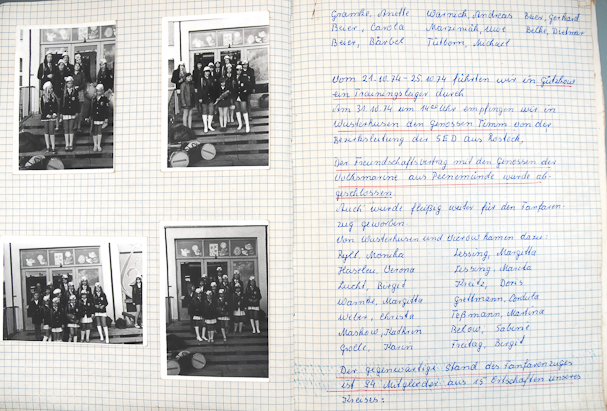 Gramke, Anette Warnick, Andreas Beier, Gerhard
Beier, Carola Uwe Dietmar
Beier, Bärbel Michael
Vom 21.10.74 - 25.10.74 führten wir in
ein Trainingslager durch
Am 31.10.74 um 14 Uhr empfingen wir in
Wusterhusen den Genossen Timm von der
Bezirksleitung der SED aus Rostock.
Der Freundschaftsvertrag mit den Genossen der
Volksmarine aus Peenemünde wurde ab-
geschlossen
Auch wurde fleißig weiter für den Fanfaren-
zug geworben
Von Wusterhusen und Vierow kamen dazu:
Rytl, Monika Lessing, Margitta
Haseleu, Verona Lessing, Marita
Lucht, Birgit Kreutz, Doris
Warnke, Margitta Grittmann, Cordula
Weier, Christa Teßmann, Martina
Maskow, Kathrin Below, Sabine
Grolle, Karin Freitag, Birgit
Der gegenwärtige Stand des Fanfarenzuges
ist 84 Mitglieder aus 15 Ortschaften unseres
Kreises: